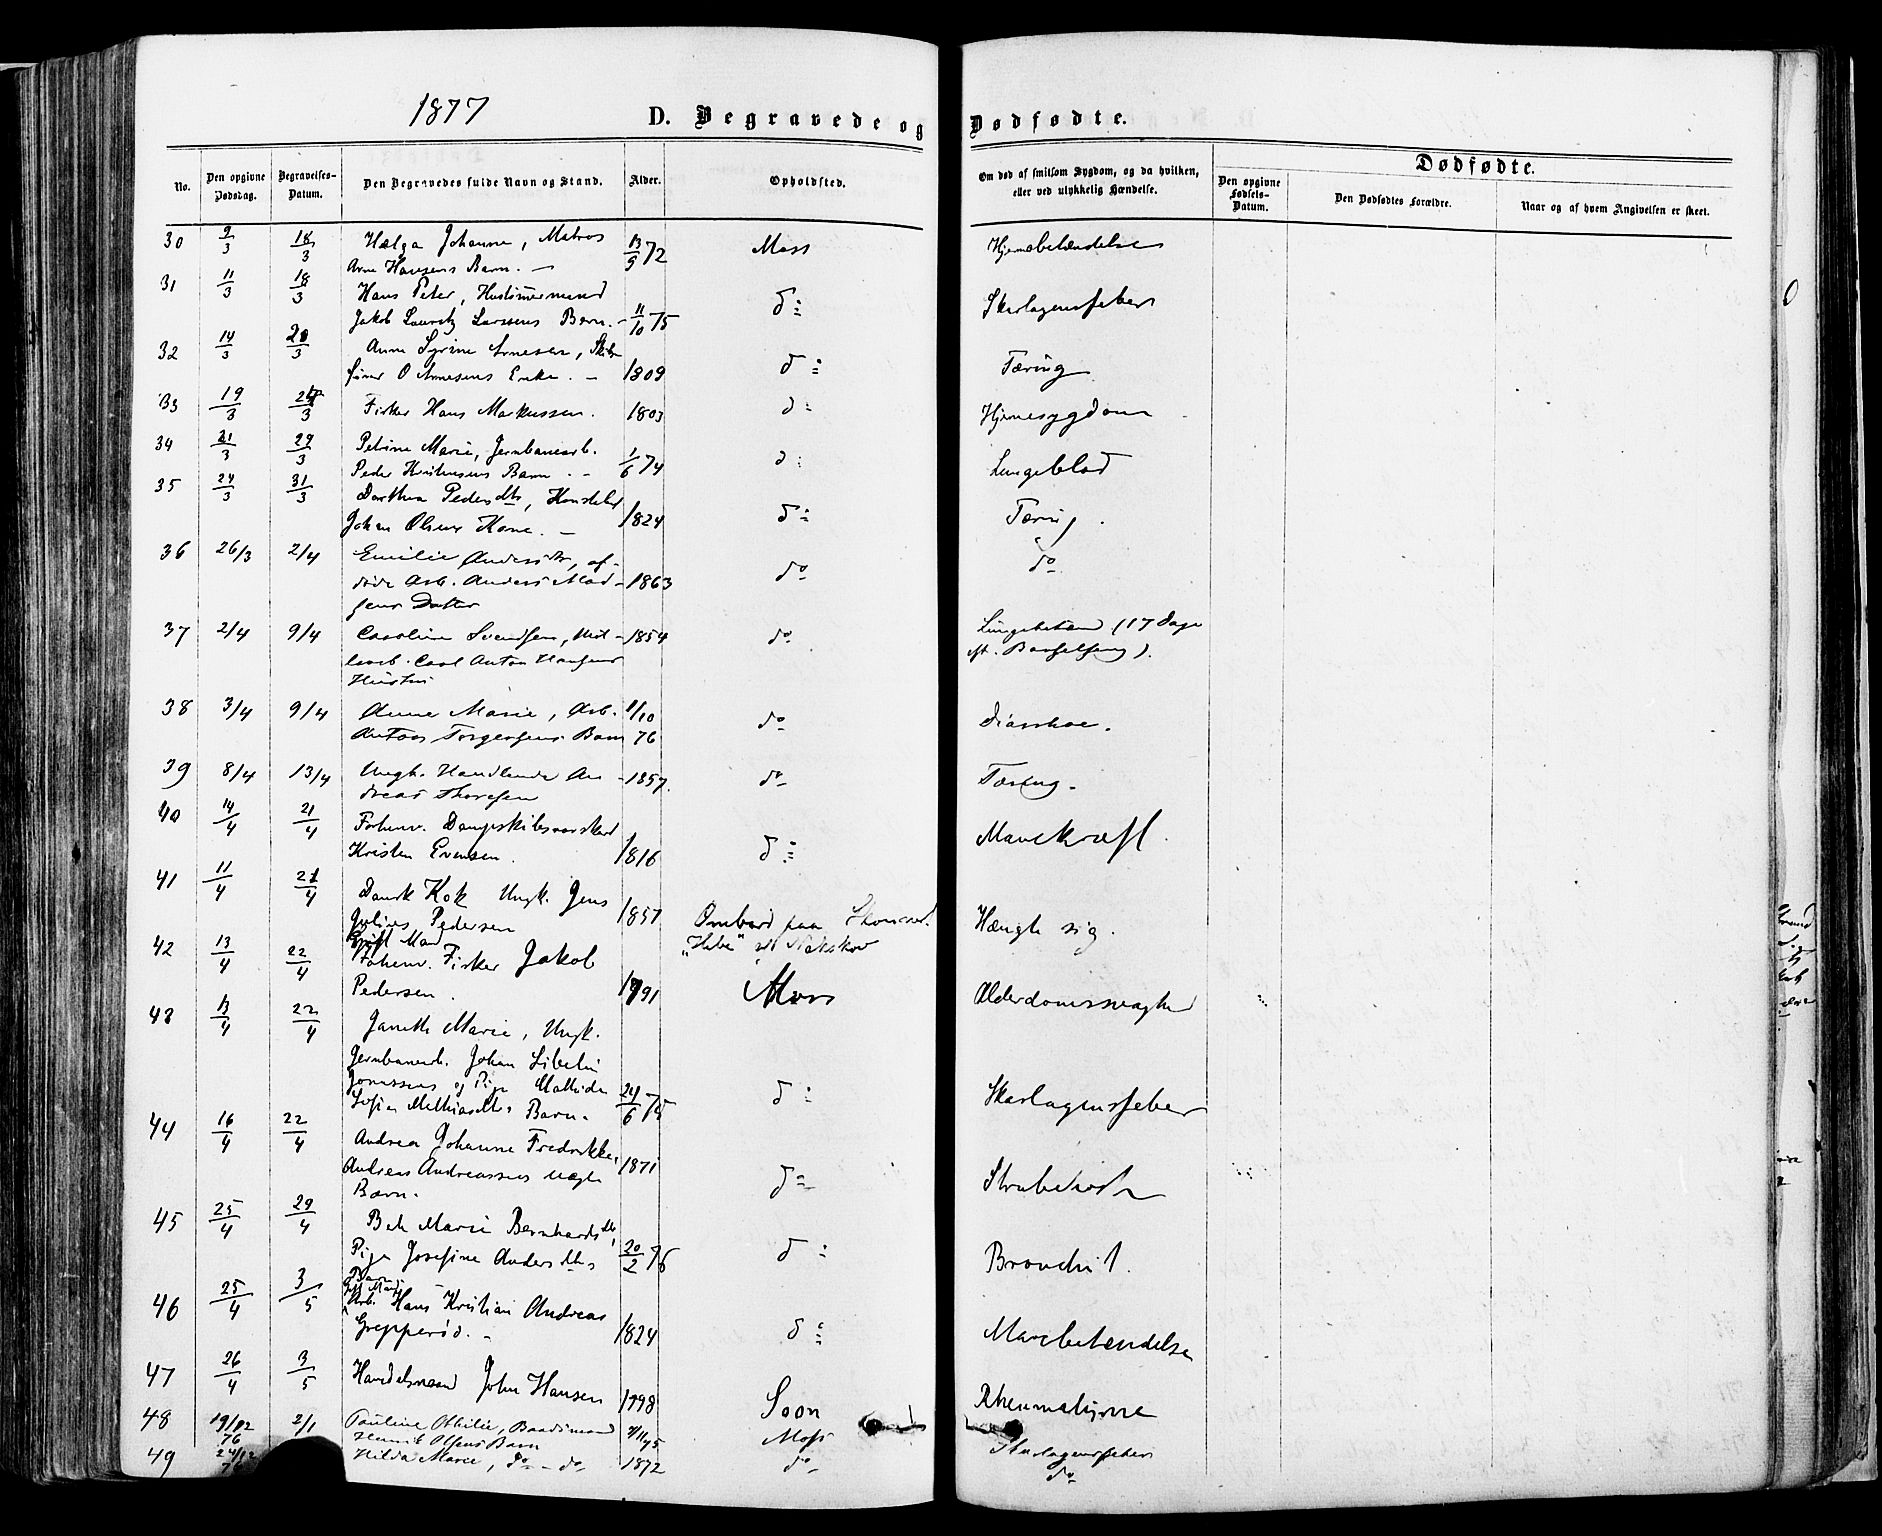 1877
D. Begravede og Dødfødte.
No. Den opgivne Dødsdag. Begravelses-Datum. Den Begravedes fulde Navn og Stand. Alder. Opholdsted. Om død af smitsom Sygdom, og da hvilken, eller ved ulykkelig Hændelse. Dødfødte.
Den opgivne Fødsels-Datum. Den Dødfødtes Forældre. Naar og af hvem Angivelsen er skeet.
30 9/3 18/3 Hælga Johanne, Matros 13/9 72 Moss Hjernebetændelse
Arne Hansens Barn. —
31 11/3 18/3 Hans Peter, Hustømermand
Jakob Lauritz Larssens Barn. - 11/10 75 do Skarlagensfeber
32 14/3 20/3 Anne Syrine Arnesen, Skibs
fører O Arnesens Enke. - 1809 do Tæring
33 19/3 24/3 Fisker Hans Markussen. 1803 do Hjernesygdom
34 21/3 29/3 Petrine Marie, Jernbanearb.
Peder Kristensens Barn. - 1/6 74 do Lungeblod
35 24/3 31/3 Dorthea Pedersdtr,
Johan Olsens Kone. - 1824 do Tæring.
36 26/3 2/4 Emilie Andersdtr, af-
døde Arb. Anders Mad- 1863 do do
sens Datter
37 2/4 9/4 Caroline Svendsen, 1854 do (17 Dage
Carl Anton Hansens eft. Barselseng).
Hustru
38 3/4 9/4 Anne Marie, Arb. 9/10 do Diarrhoe.
Anton Torgersens Barn 76
39 8/4 13/4 Ungk. Handlende An- 1857. do Tæring.
dreas Thoresen
40 14/4 21/4 Forhenv. Dampskibs
Kristen Evensen. 1816 do Mavekræft.
41 11/4 21/4 Dansk Kok Ungk. Jens
Julius Pedersen 1857 Ombord paa Hængte sig.
"Hebe" Nakskov
42 13/4 22/4 Gift Mand
Forhenv. Fisker Jakob
Pedersen. 1791 Moss Alderdomssvaghed
43 13/4 22/4 Janette Marie, Ungk.
Jernbanearb. Johan
Jonassens og Pige Mathilde
Sofie Mathiasdtrs Barn. 24/6 75 do Skarlagensfeber
44 16/4 22/4 Andrea Johanne Fredrikke,
Andreas Andreassens uægte 1871 do Strubehoste
Barn.
45 25/4 29/4 Marie Bernhardsdtr,
Pige Josefine Andersdtrs 20/2 76 do Bronchit.
Barn
46 25/4 3/5 Gift Mand
Arb. Hans Kristian Andreas
Grepperød. - 1824 do Mavebetændelse
47 26/4 3/5 Handelsmand John Hansen 1798 Soon
48 19/12 76 2/1 Pauline Othilie, Baadsmand Moss Skarlagensfeber
Henrik Olsens Barn
49 24/12 Hilda Marie, do - do 1872 do do